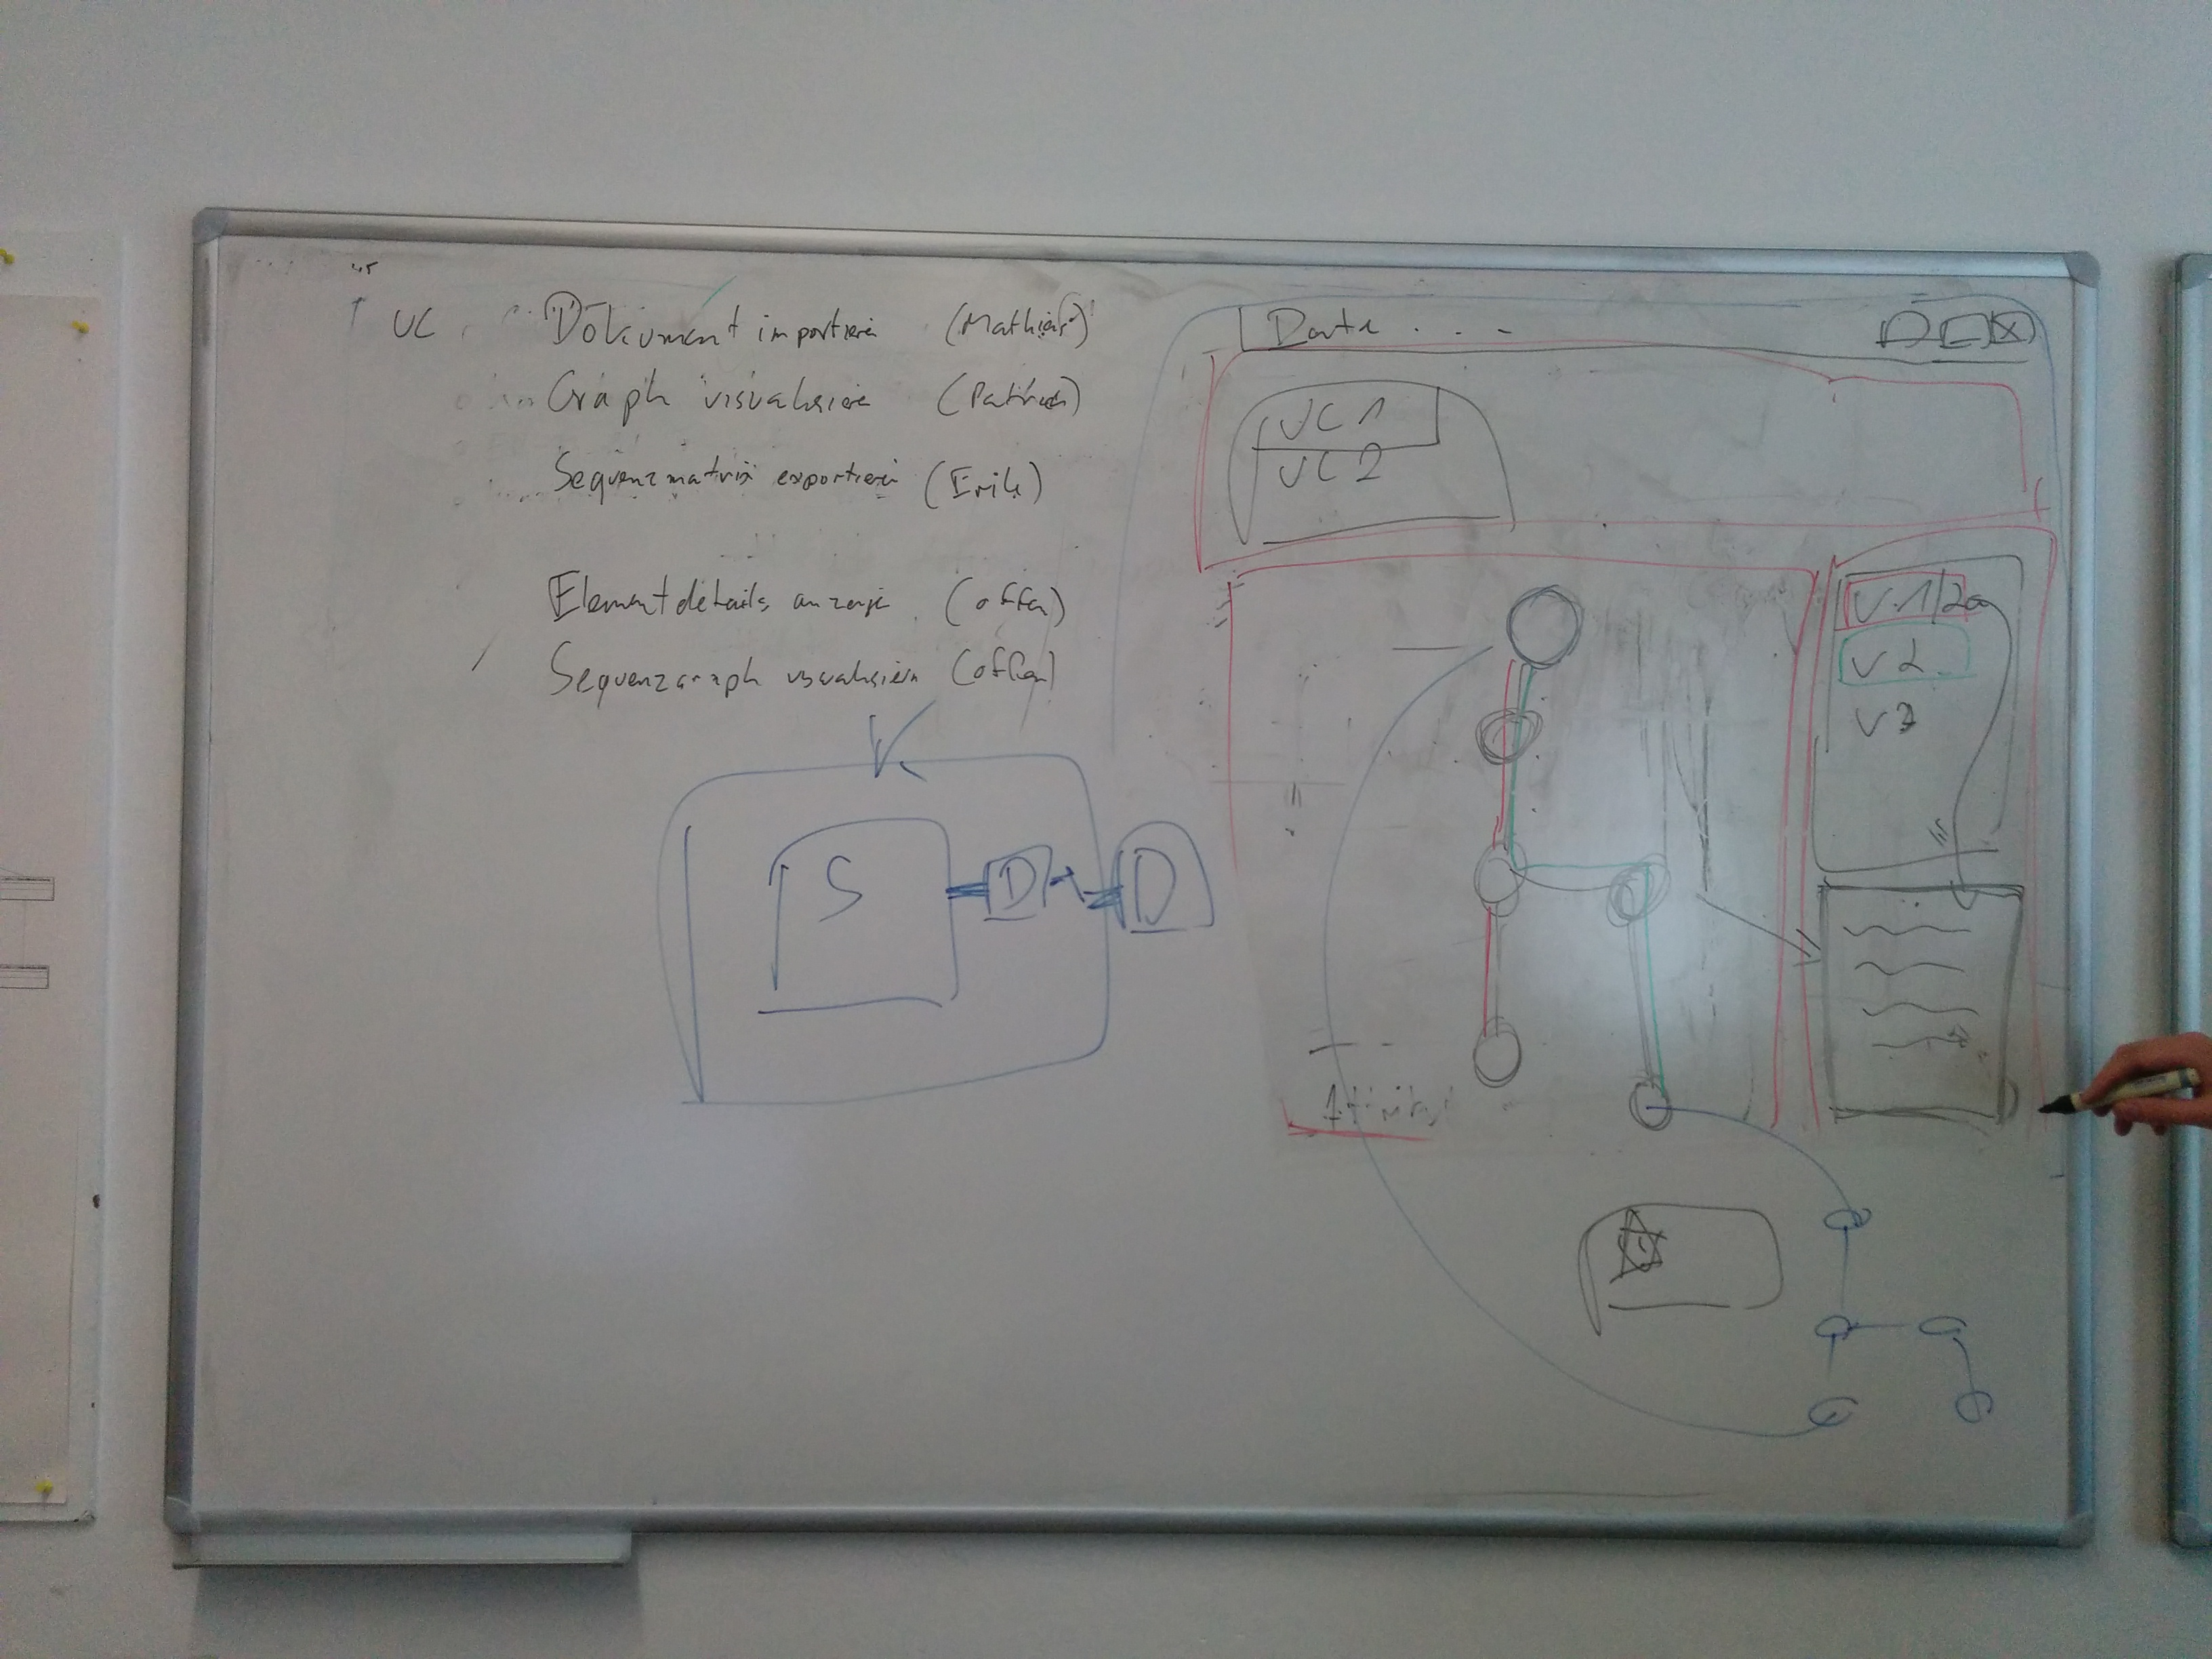 UC Dokument importieren (Mathias)
Graph visualisieren (Patrick)
Sequenzmatrix exportieren (Erik)
Elementdetails anzeigen (offen)
Sequenzgraph visualisieren (offen)
S D D
Datei . . -
UC 1
UC 2
V.1/2a
V2
V3